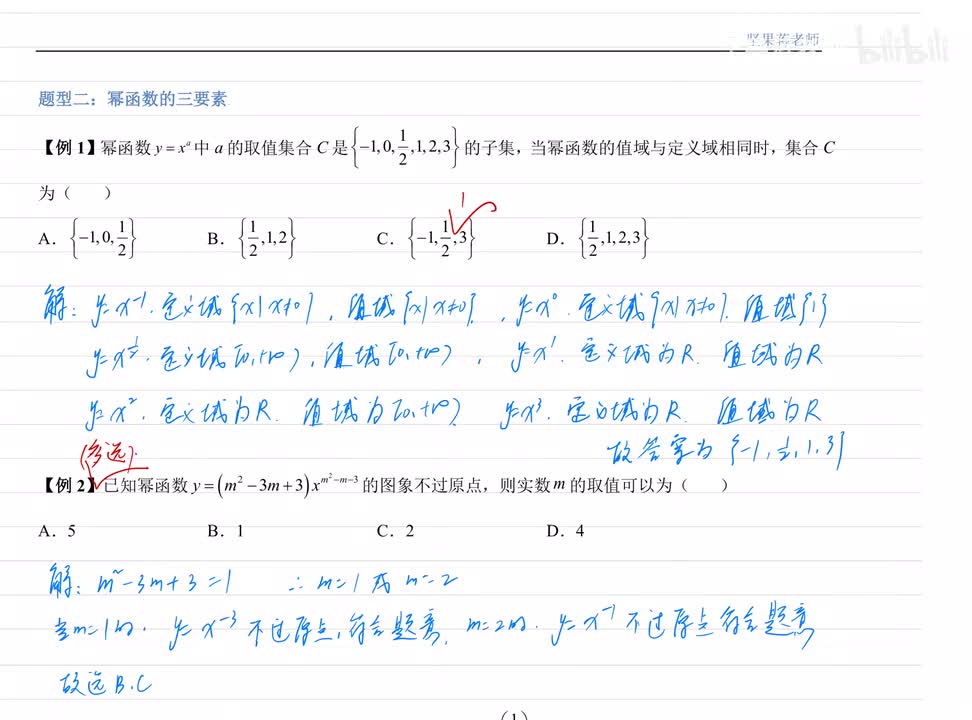 坚果蒋老师
bilibili
题型二：幂函数的三要素
【例 1】幂函数 y = xᵃ 中 a 的取值集合 C 是 {−1, 0, 1/2, 1, 2, 3} 的子集，当幂函数的值域与定义域相同时，集合 C
为（　　）
1
A．{−1, 0, 1/2}　B．{1/2, 1, 2}　C．{−1, 1/2, 3}　D．{1/2, 1, 2, 3}
解：y=x⁻¹. 定义域{x|x≠0}，值域{x|x≠0}，y=x⁰. 定义域{x|x≠0}. 值域{1}
y=x^(1/2). 定义域[0,+∞)，值域[0,+∞)，y=x¹. 定义域为R. 值域为R
y=x². 定义域为R. 值域为[0,+∞)　y=x³. 定义域为R　值域为R
故答案为{-1, 1/2, 1, 3}
(多选).
【例 2】已知幂函数 y = (m² − 3m + 3) x^(m²−m−3) 的图象不过原点，则实数 m 的取值可以为（　　）
A．5　B．1　C．2　D．4
解：m²-3m+3=1　∴m=1或m=2
当m=1时. y=x⁻³不过原点，符合题意. m=2时. y=x⁻¹不过原点符合题意
故选B.C
(1)